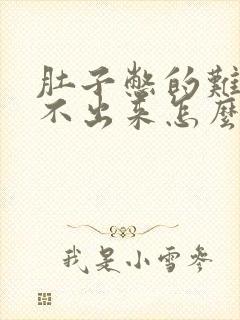 肚子憋的難
不出来怎麼
我是小雪參